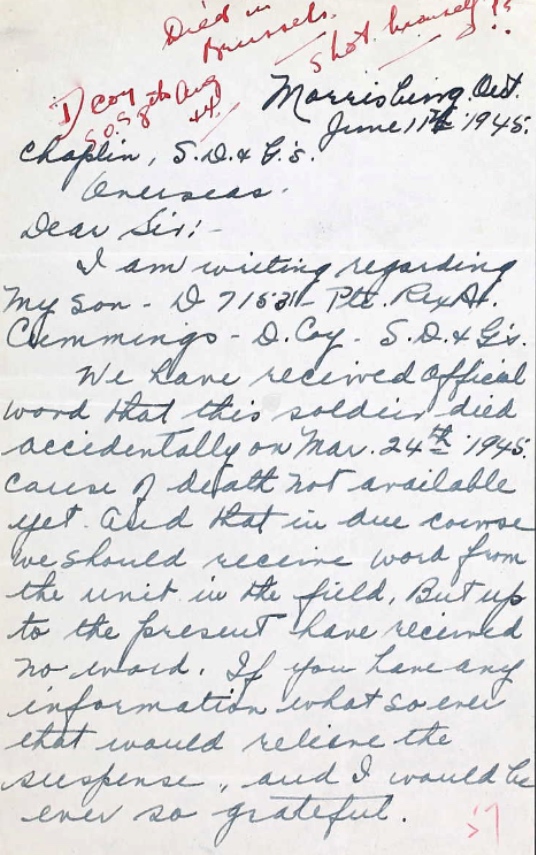 Died in
Brussels.
Shot himself !?
D coy
SOS 8th Aug
44.
Morrisburg. Ont.
June 11th 1945.
Chaplin, S.D. & G's.
Overseas.
Dear Sir:-
I am writing regarding
My son - D 71531 - Pte. Rex A.
Cummings - D. Coy - S.D. & G's.
We have received official
word that this soldier died
accidentally on Mar. 24th 1945.
cause of death not available
yet. And that in due course
we should receive word from
the unit in the field. But up
to the present have received
no word. If you have any
information what so ever
that would relieve the
suspense, and I would be
ever so grateful.